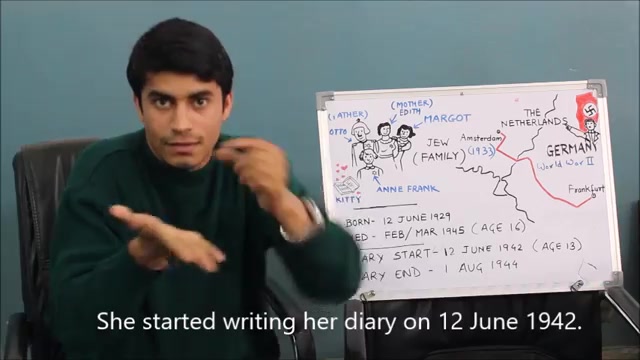 (MOTHER)
EDITH
OTTO
MARGOT
JEW
(FAMILY)
ANNE FRANK
KITTY
THE
NETHERLANDS
Amsterdam
(1933)
GERMANY
World War II
Frankfurt
BORN- 12 JUNE 1929
- FEB/ MAR 1945 (AGE 16)
START- 12 JUNE 1942 (AGE 13)
END - 1 AUG 1944
She started writing her diary on 12 June 1942.